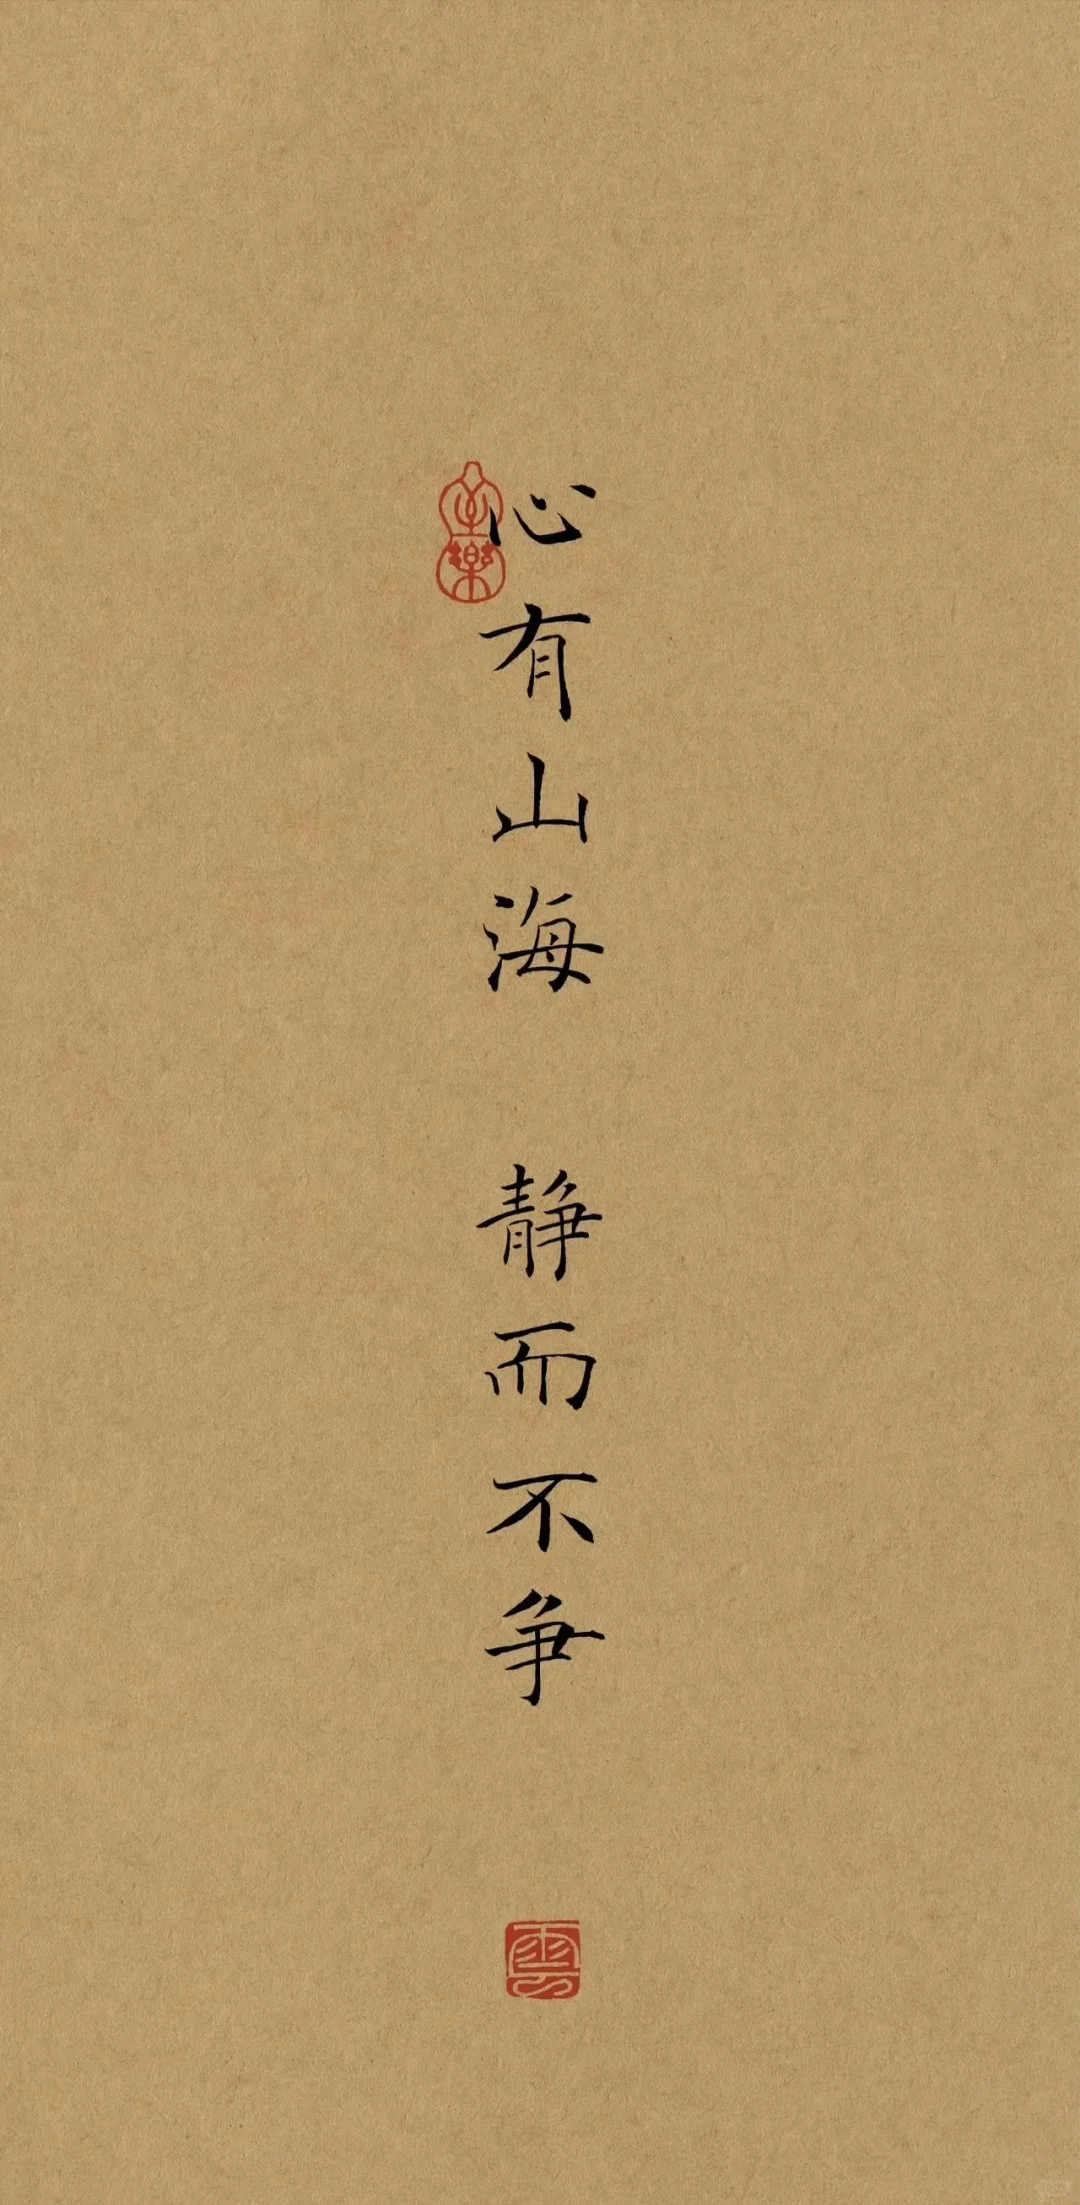 心有山海 静而不争
雲